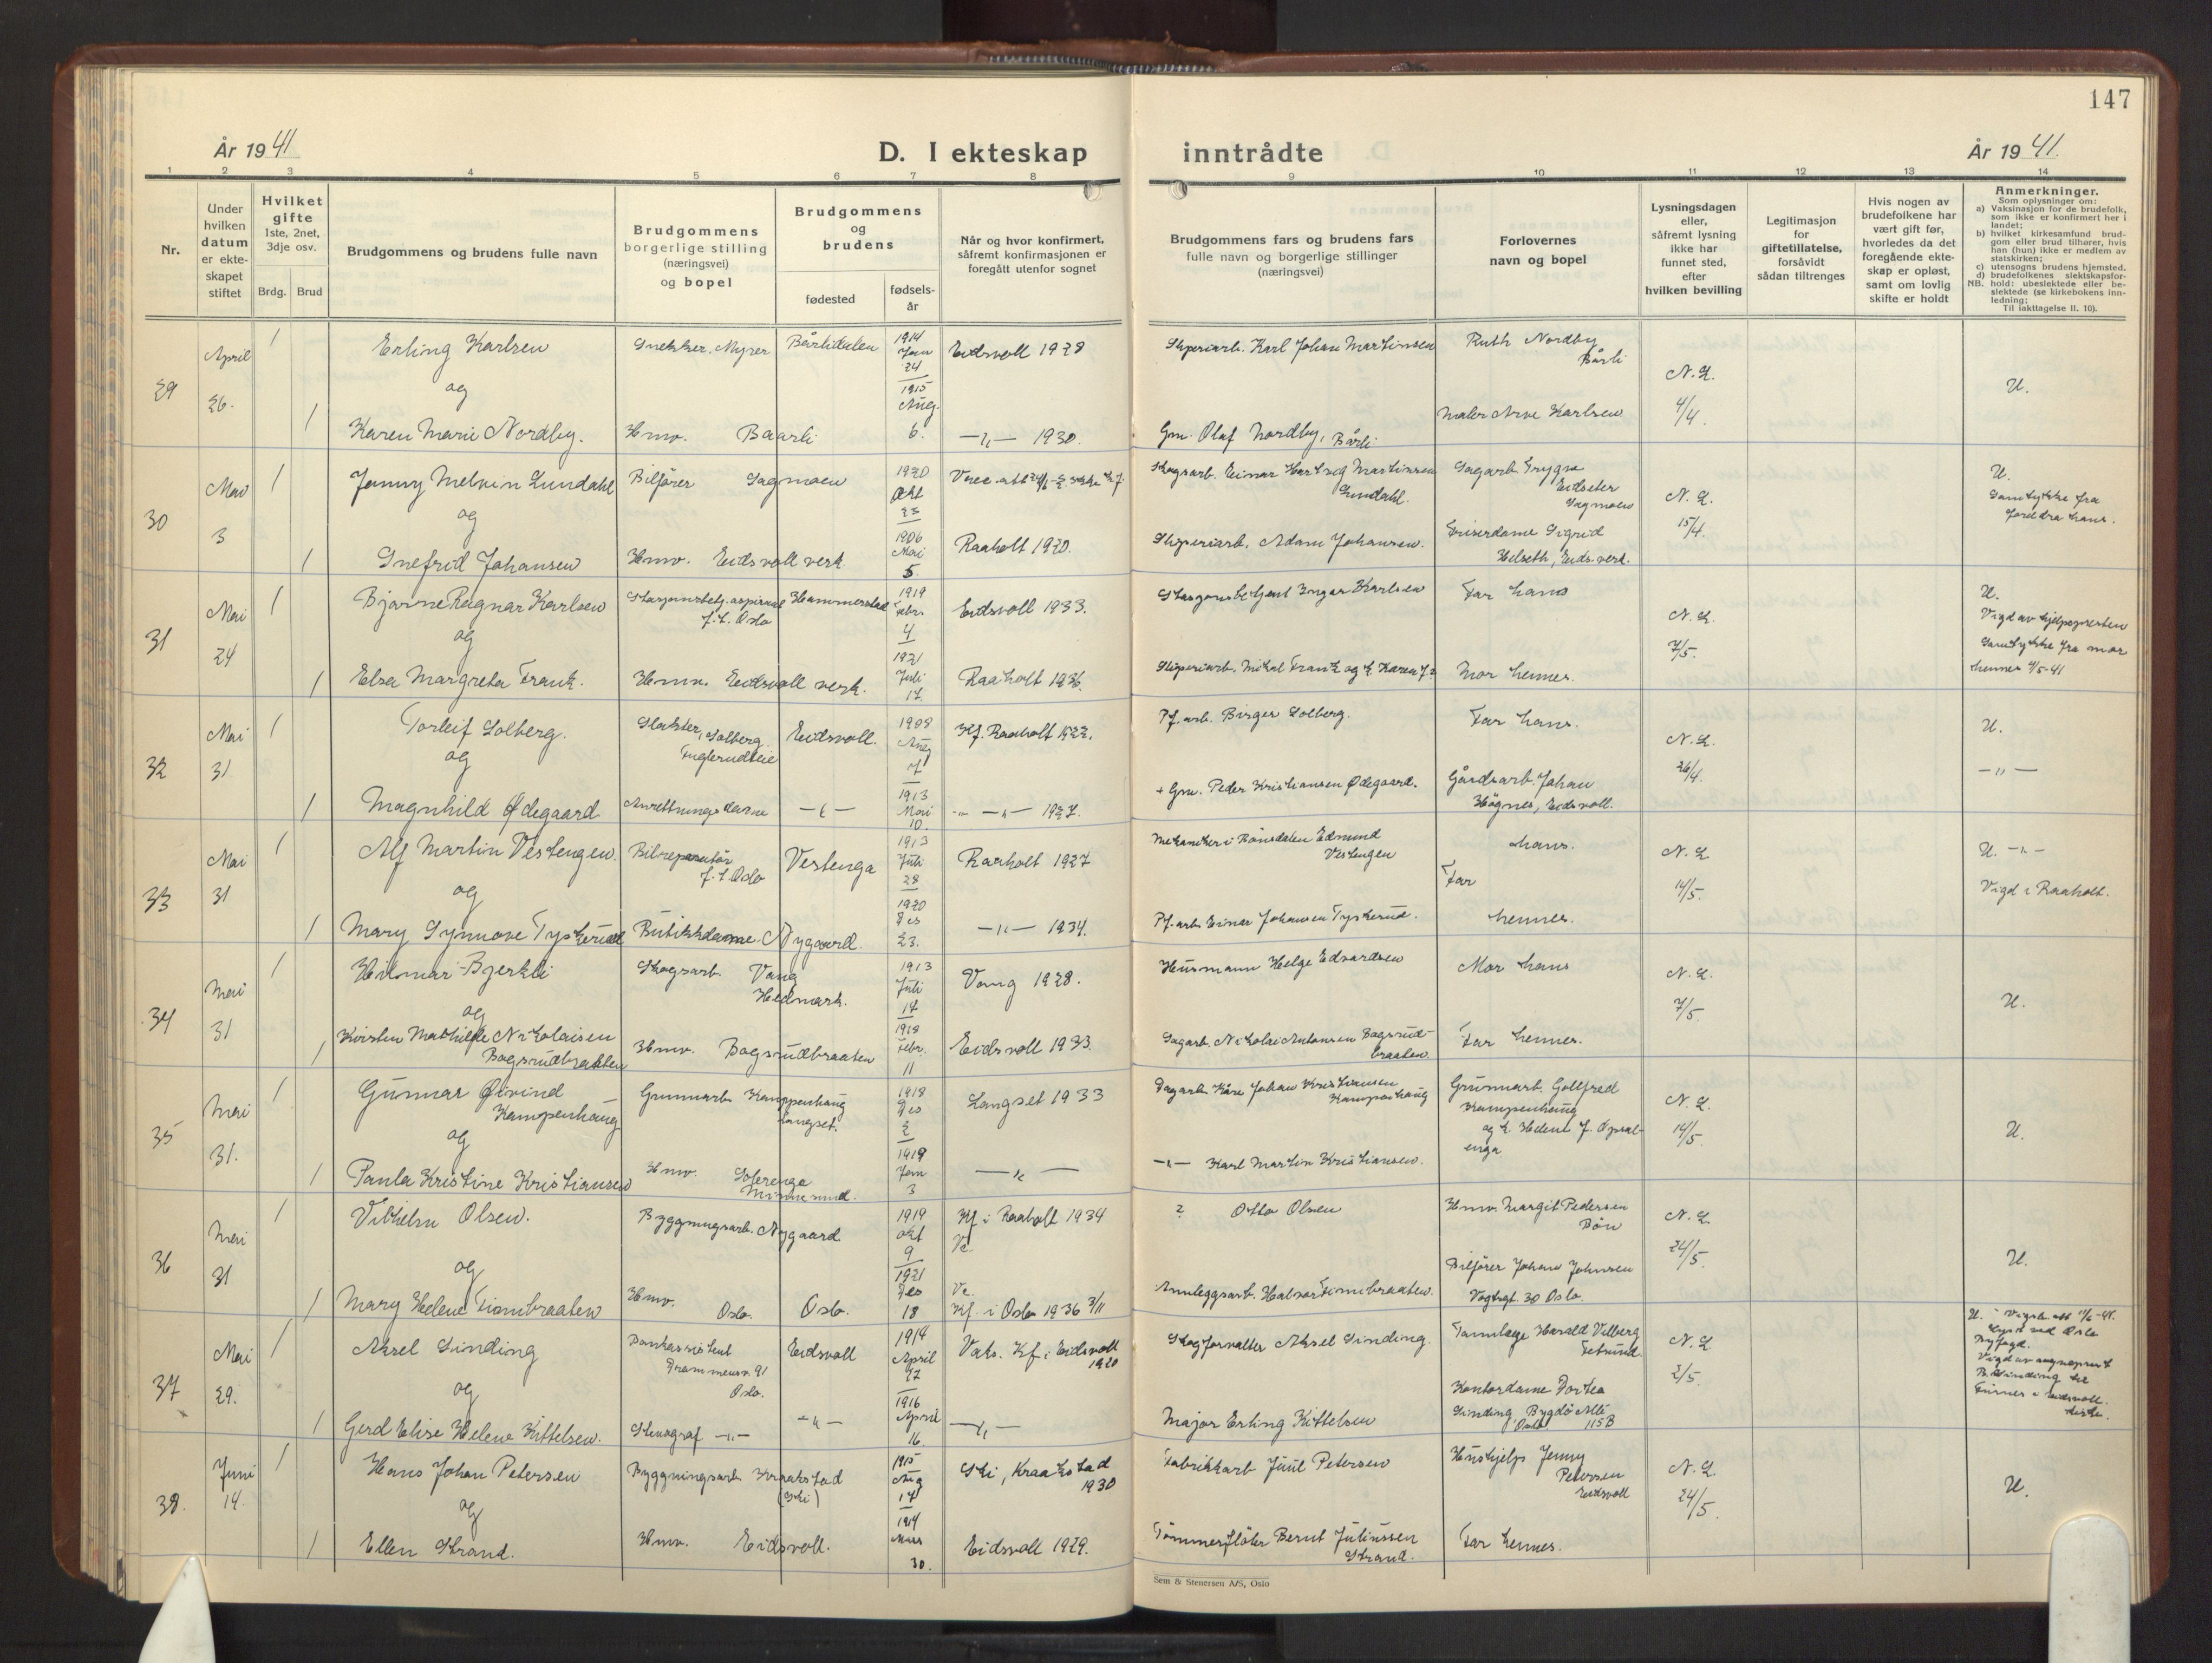 147
År 1941
D. I ekteskap inntrådte
År 1941.
1 2 3 4 5 6 7 8 9 10 11 12 13 14
Nr.
Under hvilken datum er ekteskapet stiftet
Hvilket gifte 1ste, 2net, 3dje osv.
Brdg. Brud
Brudgommens og brudens fulle navn
Brudgommens borgerlige stilling (næringsvei) og bopel
Brudgommens og brudens
fødested
fødselsår
Når og hvor konfirmert, såfremt konfirmasjonen er foregått utenfor sognet
Brudgommens fars og brudens fars fulle navn og borgerlige stillinger (næringsvei)
Forlovernes navn og bopel
Lysningsdagen eller, såfremt lysning ikke har funnet sted, efter hvilken bevilling
Legitimasjon for giftetillatelse, forsåvidt sådan tiltrenges
Hvis nogen av brudefolkene har vært gift før, hvorledes da det foregående ekteskap er opløst, samt om lovlig skifte er holdt
Anmerkninger.
Som oplysninger om:
a) Vaksinasjon for de brudefolk, som ikke er konfirmert her i landet;
b) hvilket kirkesamfund brudgom eller brud tilhører, hvis han (hun) ikke er medlem av statskirken;
c) utensogns brudens hjemsted.
d) brudefolkenes slektskapsforhold: ubeslektede eller beslektede (se kirkebokens innledning;
NB.
Til iakttagelse II. 10).
29 April 26. 1 Erling Karlsen Snekker. Myrer Bårlidalen 1914 Jan 24 Eidsvoll 1928 Sliperiarb. Karl Johan Martinsen Ruth Nordby Bårli N.L. 4/4. U.
og
1 Karen Marie Nordby. Hmv. Baarli 1915 Aug. 6. —"— 1930. Gm. Olaf Nordby, Bårli Maler Arve Karlsen
30 Mai 3 1 Jenny Melvin Lundahl Bilfører Sagmoen 1920 Okt 23 Skogsarb. Einar Hartvig Martinsen Lundahl. Sagarb. Trygve Eidseter Sagmoen N.L. 15/4. U. Samtykke fra foreldra hans.
og
1 Snefrid Johansen Hmv. Eidsvoll verk 1906 Mai 5. Raaholt 1920. Sliperiarb. Adam Johansen. Sigrid Helseth, Eids. verk.
31 Mai 24 1 Bjarne Ragnar Karlsen Stasjonsbetj. aspirant f.t. Oslo Hammerstad 1919 Febr. 4 Eidsvoll 1933. Stasjonsbetjent Ingar Karlsen Far hans N.L. 7/5. U. Vigd av hjelpepresten Samtykke fra mor hennes 4/5-41
og
1 Elsa Margreta Frank. Hmv. Eidsvoll verk. 1921 Juli 17. Raaholt 1936. Sliperiarb. Mikal Frank og h. Karen Mor hennes.
32 Mai 31 1 Torleif Solberg. Slakter, Solberg Fuglerudeie Eidsvoll. 1908 Aug 7 Kf. Raaholt 1922. Pf. arb. Birger Solberg. Far hans. N.L. 26/4. U.
og
1 Magnhild Ødegaard Anretningsdame —"— 1913 Mai 10. —"— 1927. + Gm. Peder Kristiansen Ødegaard. Gårdsarb. Johan Høgnes, Eidsvoll. —"—
33 Mai 31 1 Alf Martin Vestengen. Bilreparatør f.t. Oslo Vestenga 1913 Juli 28 Raaholt 1927 Mekaniker i Rånsdalen Edmund Vestengen Far hans. N.L. 14/5. U. —"— Vigd i Raaholt.
og
1 Mary Synnøve Tyskerud Butikkdame. Nygaard. 1920 Des 23. —"— 1934. Pf. arb. Einar Johansen Tyskerud. hennes.
34 Mai 31 1 Hilmar Bjerkli Skogsarb. Vang Hedmark. 1913 Juli 17 Vang 1928. Husmann Helge Edvardsen Mor hans N.L. 7/5. U.
og
1 Kirsten Mathilde Nikolaisen Bogsrudbraaten Hmv. Bogsrudbraaten 1918 Febr. 11 Eidsvoll 1933. Sagarb. Nikolai Antonsen Bogsrudbraaten. Far hennes.
35 Mai 31. 1 Gunnar Øivind Kampenhaug Grunnarb. Kampenhaug Langset. 1918 Des 2 Langset 1933 Dagarb. Kåre Johan Kristiansen Kampenhaug Grunnarb. Gottfred Kampenhaug N.L. 14/5. U.
og
1 Paula Kristine Kristiansen Hmv. Minnesund. 1919 Jan 3 —"— —"— Karl Martin Kristiansen. og h. Helene
36 Mai 31 1 Vilhelm Olsen. Byggningsarb. Nygaard 1919 Okt 9 Kf. i Raaholt 1934 Vc. ? Otto Olsen Hmv. Margit Pedersen Bøn N.L. 24/5. U.
og
1 Mary Helene Timbraaten Hmv. Oslo. Oslo. 1921 Des 18 Vc. Kf. i Oslo 1936 Anleggsarb. Halvor Timbraaten. Bilfører Johan Johnsen Vogtsgt. 30 Oslo.
37 Mai 29. 1 Aksel Sinding Bankassistent Drammensv. 91 Oslo. Eidsvoll 1914 April 27 Vaks. Kf. i Eidsvoll Skogforvalter Aksel Sinding. Tannlege Harald Vilberg Fetsund N.L. 2/5. U. Lyst ved Oslo Byfogd. Vigd av sogneprest
og
1 Gerd Elise Helene Kittelsen. Stenograf —"— —"— 1916 April 16. —"— Major Erling Kittelsen Kontordame Dortea Sinding Bygdø Allé 115B Oslo
38. Juni 14. 1 Hans Johan Petersen Byggningsarb. Kraakstad (Ski) 1915 Aug 17 Ski, Kraakstad 1930 Fabrikkarb Juul Petersen Hushjelp Jenny Petersen Eidsvoll N.L. 24/5. U.
og
1 Ellen Strand. Hmv. Eidsvoll. 1914 Mars 30. Eidsvoll 1929. Tømmerfløter Bernt Juliussen Strand. Far hennes.
Sem & Stenersen A/S, Oslo